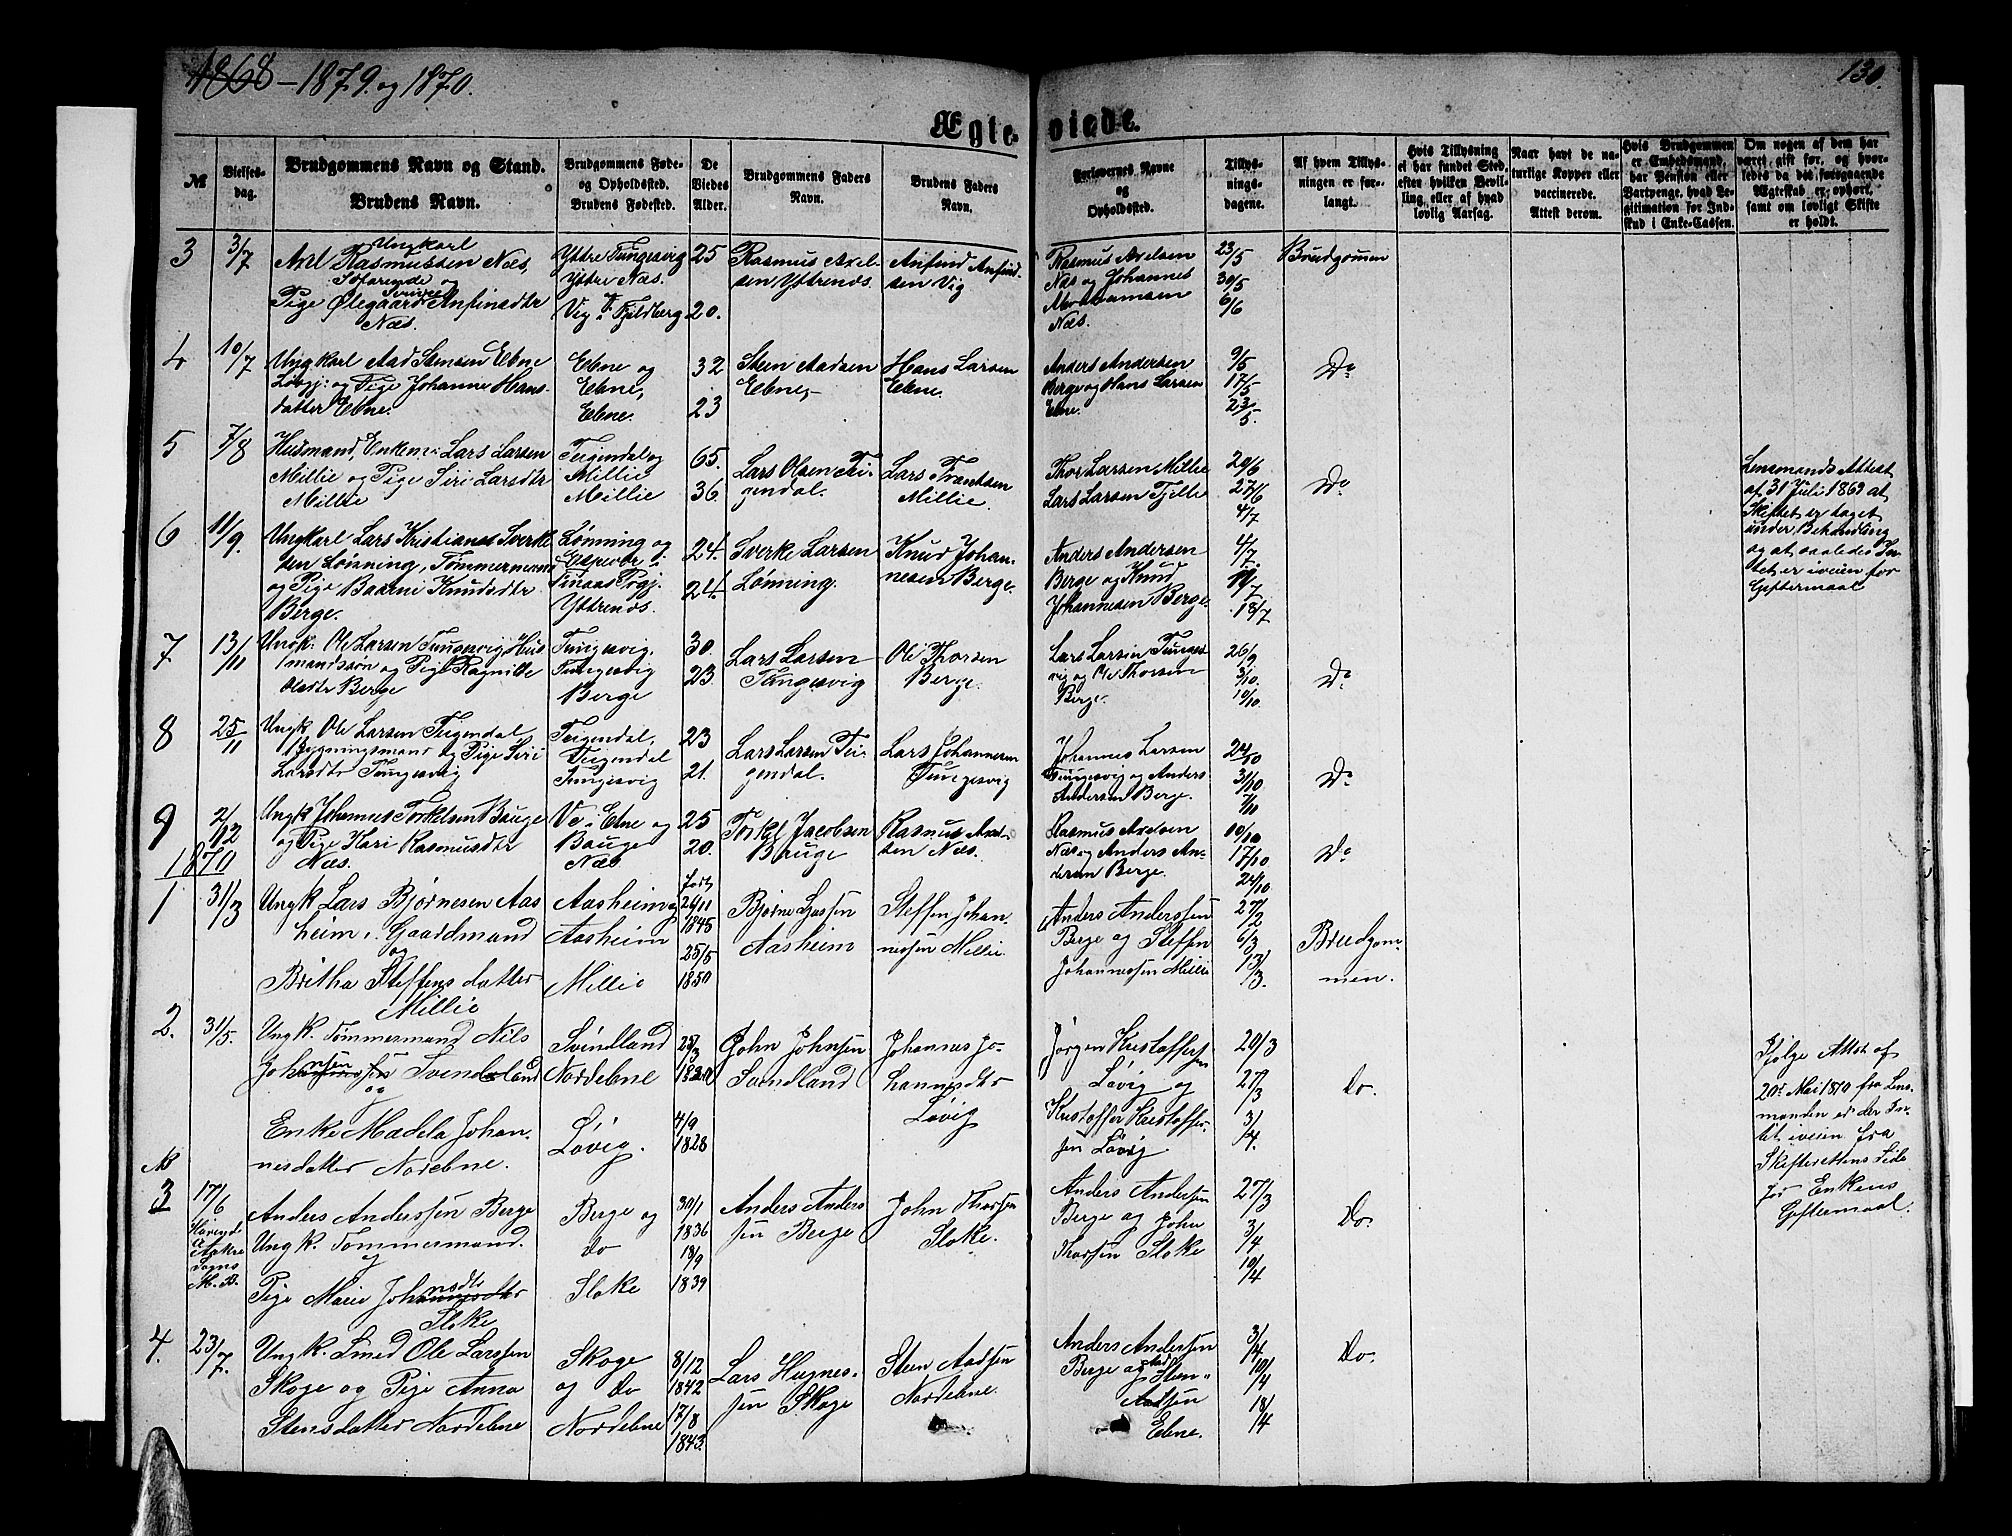 1868 - 1879. og 1870.
130.
Ægte-
viede.
№
Vielses-
dag.
Brudgommens Navn og Stand.
Brudens Navn.
Brudgommens Føde-
og Opholdssted.
Brudens Fødested.
De
Viedes
Alder.
Brudgommens Faders
Navn.
Brudens Faders
Navn.
Forlovernes Navne
og
Opholdssted.
Tillys-
nings-
dagene.
Af hvem Tillys-
ningen er for-
langt.
Hvis Tillysning
ei har fundet Sted,
efter hvilken Bevil-
ling, eller af hvad
lovlig Aarsag.
Naar havt de na-
turlige Kopper eller
vaccinerede.
Attest derom.
Hvis Brudgommen
er Embedsmand,
har Pension eller
Vartpenge, hvad Le-
gitimation for Ind-
skud i Enke-Cassen.
Om nogen af dem har
været gift før, og hvor-
ledes da det foregaaende
Ægteskab er ophørt,
samt om lovligt Skifte
er holdt.
3
3/7
Ungkarl
Axel Rasmussen Næs,
og
Pige Ølegaard Anfindsdtr
Næs.
Yttre Tungesvig
Yttre Næs.
Vig i Fjeldberg
25
20.
Rasmus Axel-
sen Yttrenæs.
Anfind Anfind-
sen Vig
Rasmus Axelsen
Næs og Johannes
Næs.
23/5
30/5
6/6
Brudgommen
4
10/7
Ungkarl Aad Stensen Ebne
og Pige Johanne Hans-
datter Ebne.
Ebne og
Ebne,
Ebne.
32
23
Steen Aadsen
Ebne,
Hans Larsen
Ebne.
Anders Andersen
Berge og Hans Larsen
Ebne.
9/5
17/5
23/5.
Do
5
7/8
Husmand, Enkem: Lars Larsen
Millie og Pige Siri Larsdtr
Millie
Teigendal og
Millie
Millie
65.
36.
Lars Olsen Tei-
gendal.
Lars Trondsen
Millie.
Thor Larsen Millie
Lars Larsen Tjelle
20/6
27/6
4/7
Do
Lensmands Attest
af 31 Juli 1869 at
Skiftet er taget
under Behandling
og at saaledes In-
tet er iveien for
Giftermaal
6
11/9.
Ungkarl Lars Kristianes Sverke-
sen Lønning, Tømmermand
og Pige Baarni Knudsdtr
Berge.
Lønning og
Espevær i
Finaas Prgj.
Yttrenæs.
24.
24.
Sverke Larsen
Lønning.
Knud Johan-
nesen Berge.
Anders Andersen
Berge og Knud
Johannesen Berge.
4/7.
11/7
18/7
7
13/11
Ungk: Ole Larsen Tungesvig Hus-
mandssøn og Pige Ragnilde
Olsdtr Berge
Tungesvig,
Tungesvig
Berge
30.
23.
Lars Larsen
Tungesvig
Ole Thorsen
Berge.
Lars Larsen Tunges-
vig og Ole Thorsen
Berge.
26/9
3/10.
10/10.
Do
8
25/11
Ungk. Ole Larsen Teigendal
og Pige Siri
Larsdtr Tungesvig
Teigendal,
Teigendal
Tungesvig
23
21.
Lars Larsen Tei-
gendal.
Lars Johannesen
Tungesvig
Johannes Larsen
Tungesvig og Anders
Andersen Berge.
24/10
31/10
7/11
Do
9
2/12
Ungk Johannes Torkelsen Bauge
og Pige Kari Rasmusdtr
Næs.
Ve i Etne og
Bauge
Næs
25
20.
Torkel Jacobsen
Bauge
Rasmus Axel-
sen Næs.
Rasmus Axelsen
Næs og Anders An-
dersen Berge.
10/10
17/10
24/10.
Do
1870
1
31/3
Ungk Lars Bjørnesen Aas-
heim, Gaardmand
og
Britha Steffensdatter
Millie
Aasheim og
Aasheim
Millie
født
26/11
1845
25/5
1850
Bjørne Larssen
Aasheim
Steffen Johan-
nessen Millie
Anders Anderssen
Berge og Steffen
Johannessen Millie
27/2
6/3
13/3.
Brudgom-
men.
2.
31/5.
Ungk. Tømmermand Nils
Johnsen Svendland
og
Enke Madela Johan-
nesdatter Nordebne.
Svindland
Nordebne
Løvig.
4/9
1828
John Johnsen
Svindland
Johannes Jo-
hannesdtr
Løvig
Jørgen Kristoffers-
Løvig og
Kristoffer Kristoffer-
sen Løvig
20/3
27/3
3/4.
Do.
Ifølge Attest af
20de Mai 1870 fra Lens-
manden er der In-
tet iveien fra
Skifterettens Side
for Enkens
Giftermaal.
№
3
17/6
M. B.
Anders Anderssen Berge
Ungk. Tømmermand.
og
Pige Marie Johnsdtr
Støke
Berge og
do
Støke
30/1
1836
18/9
1839
Anders Anders-
sen Berge
John Thorsen
Støke.
Anders Anderssen
Berge og John
Thorsen Støke
27/3
3/4
10/4
Do.
4.
23/7.
Ungk. Smed Ole Larssen
Skoge og Pige Anna
Stensdatter Nordebne
Skoge
og Do
Nordebne
8/12
1842
17/8
1843.
Lars Hognes-
sen Skoge
Steen Aadsen
Nordebne.
Anders Anderssen
Berge og Sten
Aadsen
Ebne.
3/4
10/4
18/4
Do.